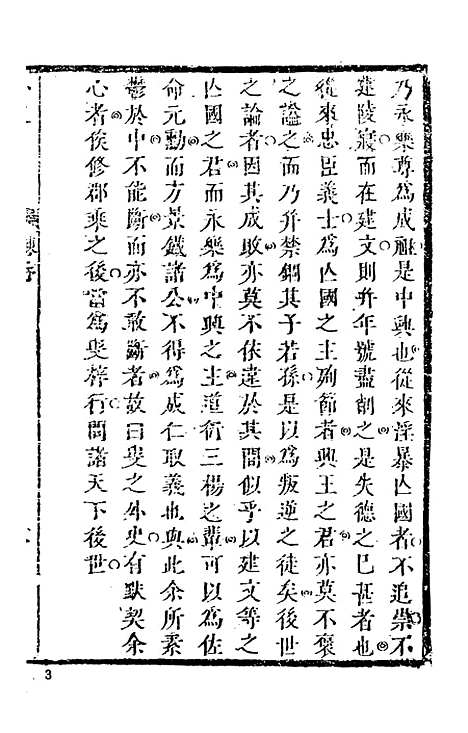 乃永樂尊爲成祖是中興也從來淫暴亾國者不追崇不
建陵寢而在建文則并年號盡削之是失德之已甚者也
從來忠臣義士爲亾國之主殉節者興王之君亦莫不褒
之諡之而乃幷禁錮其子若孫是以爲叛逆之徒矣後世
之論者因其成敗亦莫不依違於其間似乎以建文等之
亾國之君而永樂爲中興之主道衍三楊之輩可以爲佐
命元勳而方景鐵諸公不得爲成仁取義也與此余所素
鬱於中不能斷而亦不敢斷者故曰叟之外史有默契余
心者俟修郡乘之後當爲叟梓行問諸天下後世
3